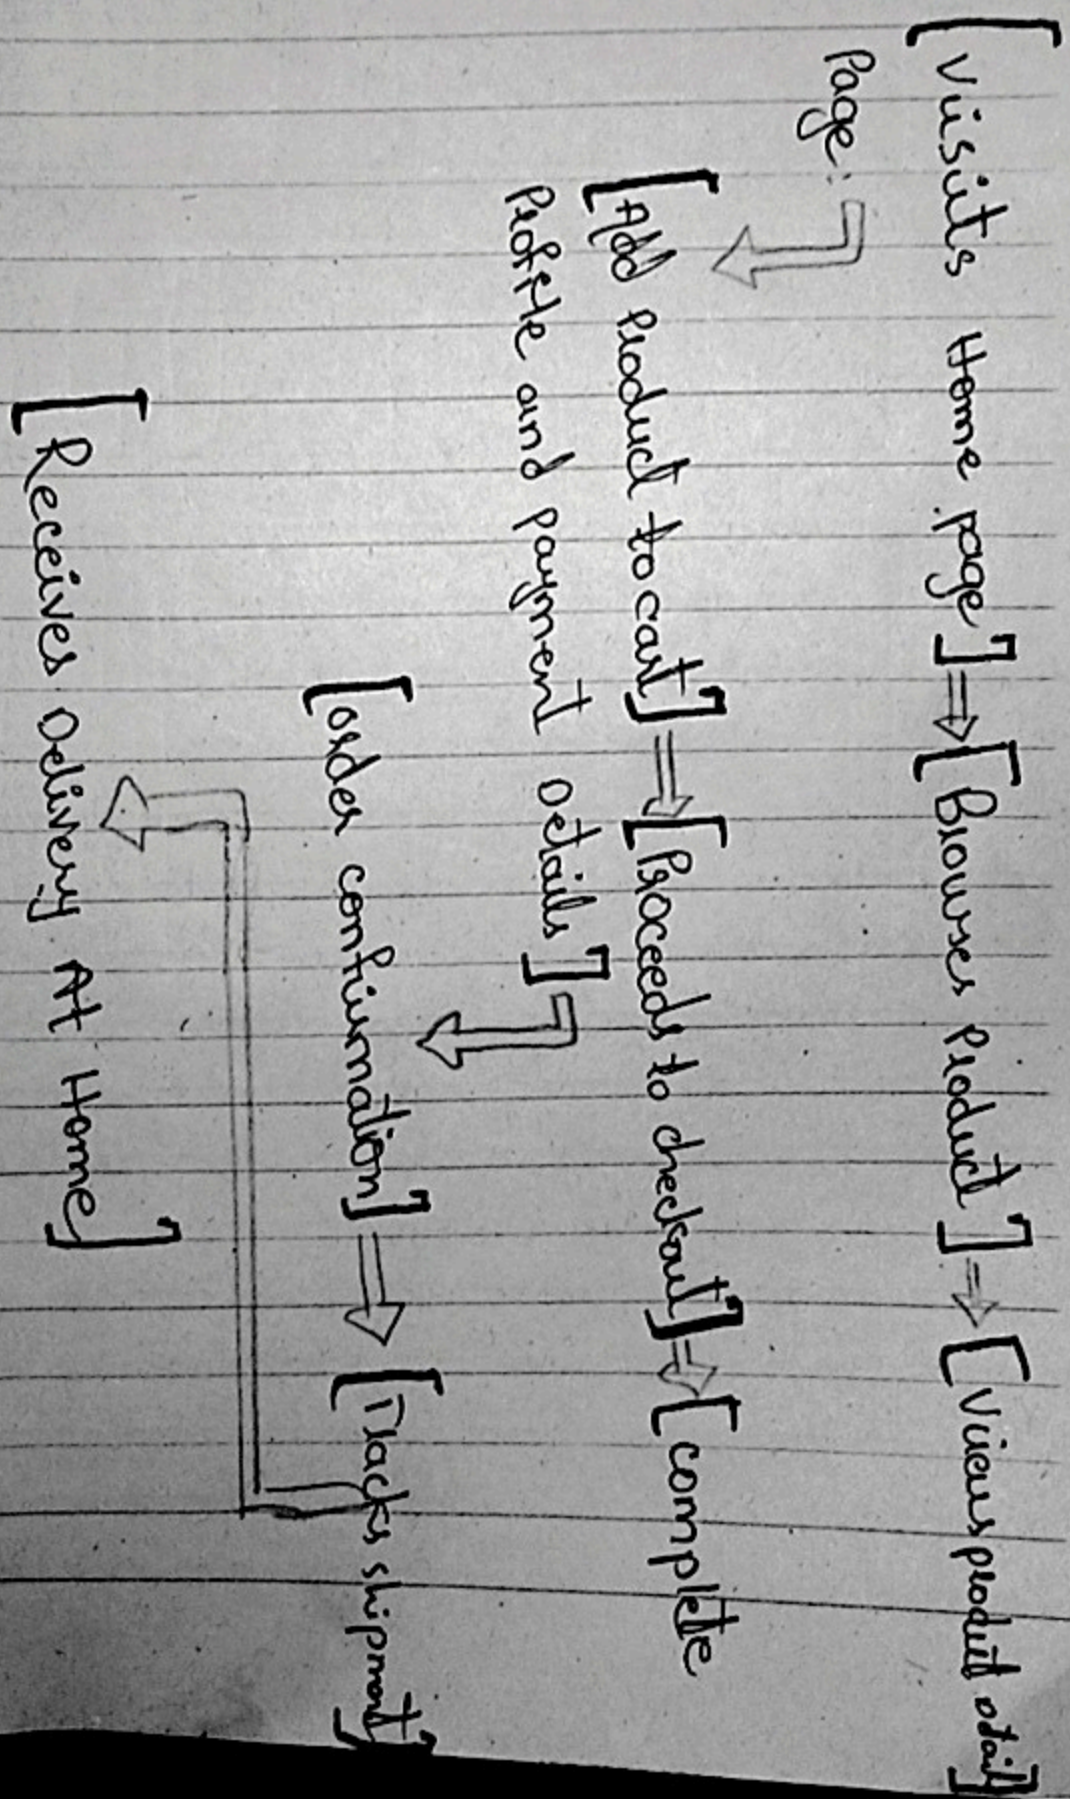 [Visits Home page] ⇒ [Browses Product] ⇒ [Views product detail]
Page:
[Add Product to cart] ⇒ [Proceeds to checkout] ⇒ [complete
Profile and payment Details]
[order confirmation] ⇒ [Tracks shipment]
[Receives Delivery At Home]